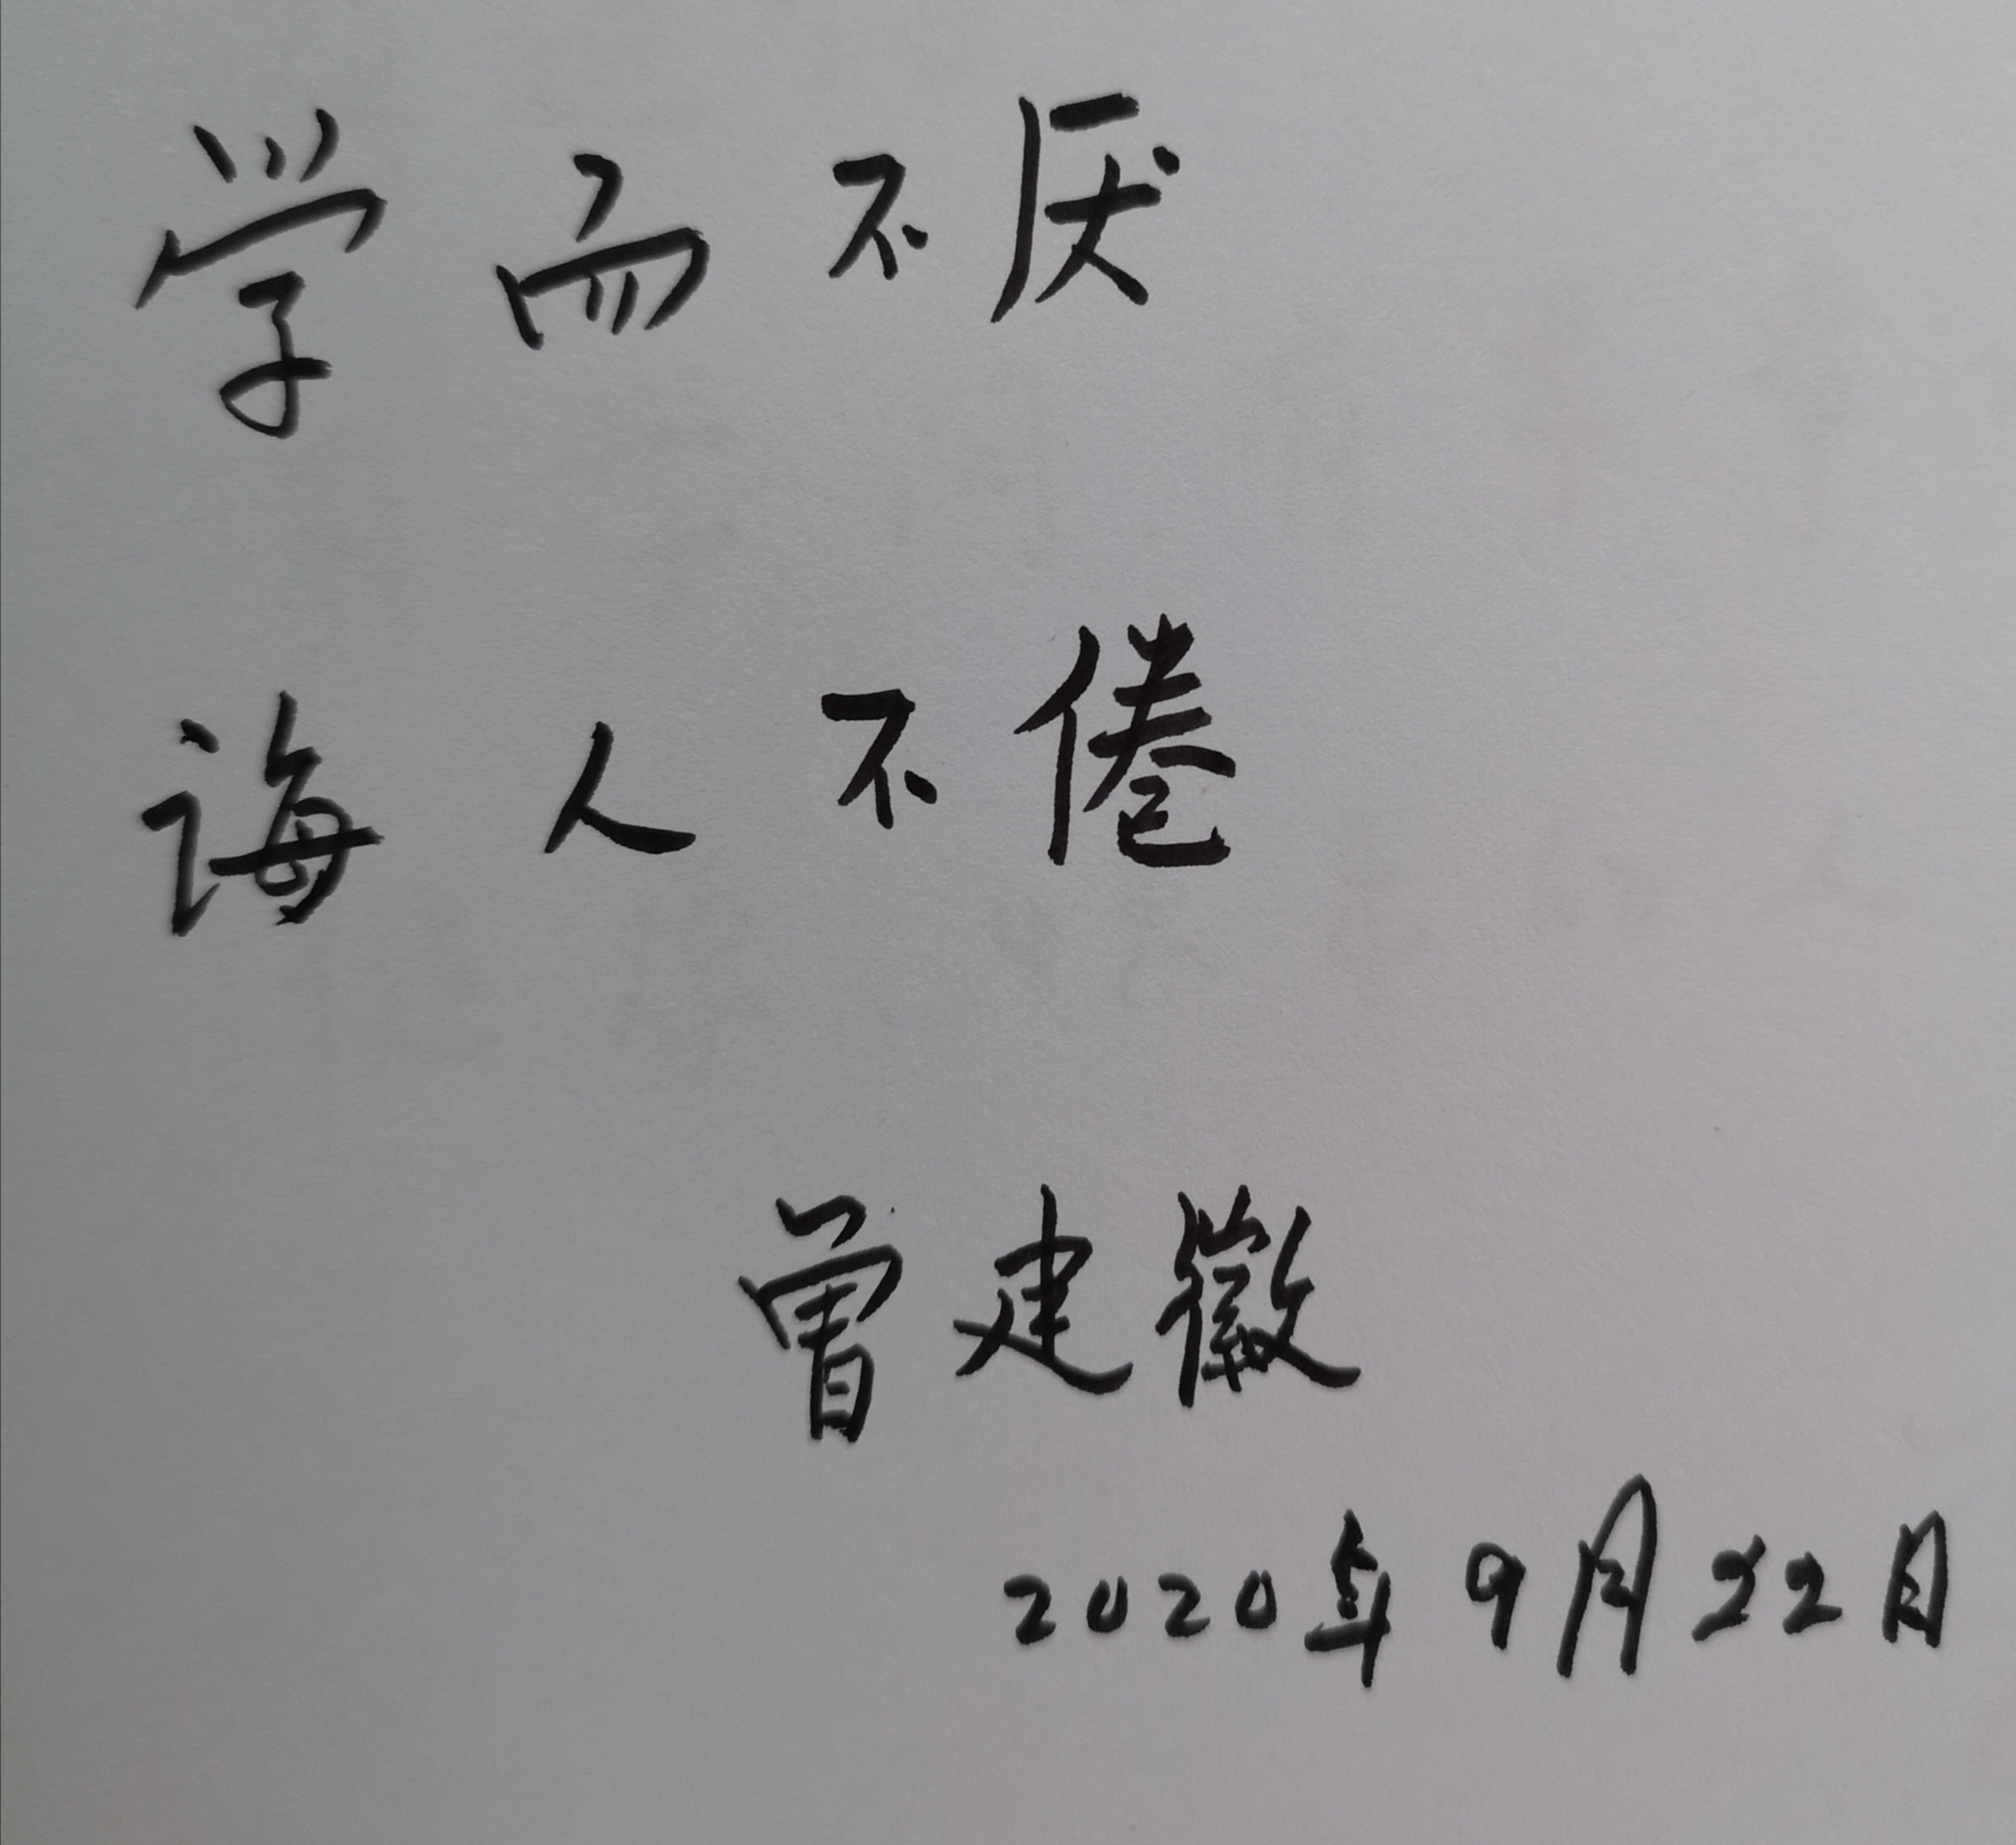 学而不厌
诲人不倦
曾建徽
2020年9月22日